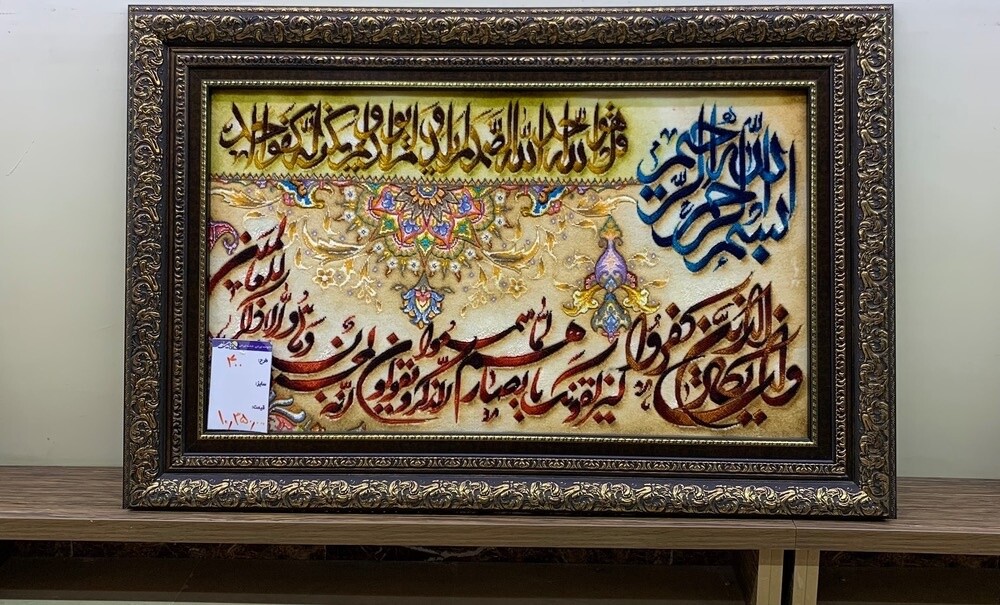 بسم الله الرحمن الرحیم
قل هو الله احد الله الصمد لم یلد و لم یولد و لم یکن له کفوا احد
وان یکاد الذین کفروا لیزلقونک بابصارهم لما سمعوا الذکر و یقولون انه لمجنون وما هو الا ذکر للعالمین
طرح: ۴۰۰
سایز:
قیمت: